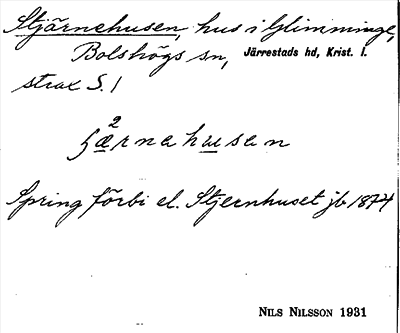 Stjärnehusen, hus i Glimminge,
Bolshögs sn, Järrestads hd, Krist. l.
strax S. 1
2
ʃærnahusen
Spring förbi el. Stjernhuset jb 1874
NILS NILSSON 1931